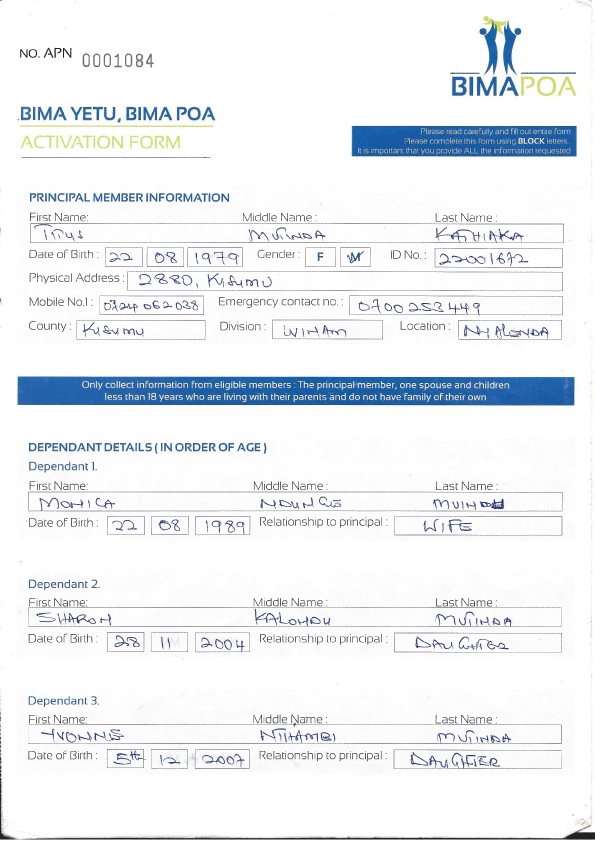 NO. APN 0001084
BIMAPOA
BIMA YETU, BIMA POA
ACTIVATION FORM
Please read carefully and fill out entire form
Please complete this form using BLOCK letters.
It is important that you provide ALL the information requested
PRINCIPAL MEMBER INFORMATION
First Name: Middle Name : Last Name :
TITUS MUTINDA KATHIAKA
Date of Birth : 22 08 1979 Gender : F M ID No. : 22001672
Physical Address : 2880, KISUMU
Mobile No.1 : 0724 062038 Emergency contact no. : 0700253449
County : KISUMU Division : WINAM Location : NYALENDA
Only collect information from eligible members : The principal member, one spouse and children
less than 18 years who are living with their parents and do not have family of their own
DEPENDANT DETAILS ( IN ORDER OF AGE )
Dependant 1.
First Name: Middle Name : Last Name :
MONICA NDUNGE
Date of Birth : 22 08 1989 Relationship to principal : WIFE
Dependant 2.
First Name: Middle Name : Last Name :
SHARON KALONDU MUTINDA
Date of Birth : 28 11 2004 Relationship to principal : DAUGHTER
Dependant 3.
First Name: Middle Name : Last Name :
YVONNE NTHAMBI MUTINDA
Date of Birth : 5th 12 2007 Relationship to principal : DAUGHTER